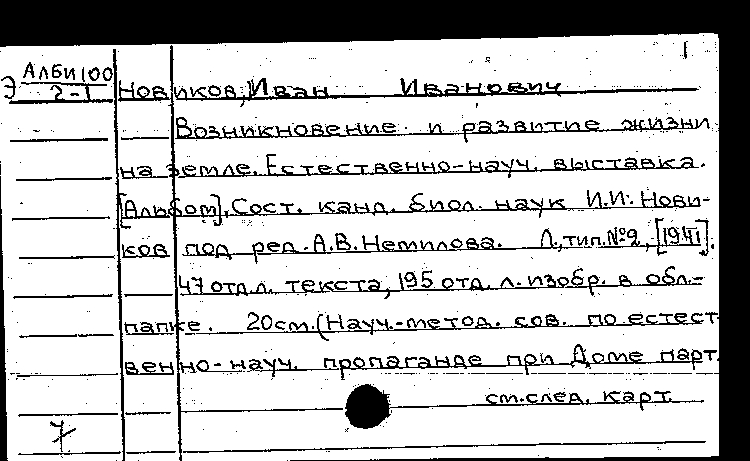 1
Э АЛБИ100
2-1
Новиков, Иван Иванович
Возникновение и развитие жизни
на земле. Естественно-науч. выставка.
[Альбом]. Сост. канд. биол. наук И.И. Нови-
ков под ред. А.В. Немилова. Л., тип. №2, [1941].
47 отд. л. текста, 195 отд. л. изобр. в обл.-
папке. 20см. (Науч.-метод. сов. по естест-
венно-науч. пропаганде при Доме парт.
см. след. карт.
7